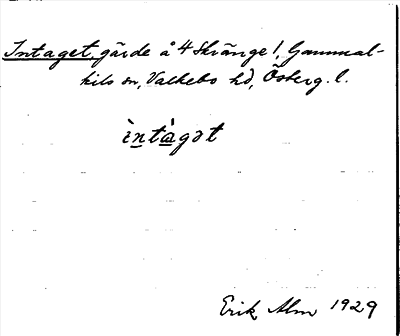 Intaget, gärde å 4 Skränge 1, Gammal-
kils sn, Valkebo hd, Österg. l.
ìntàgət
Erik Alm 1929